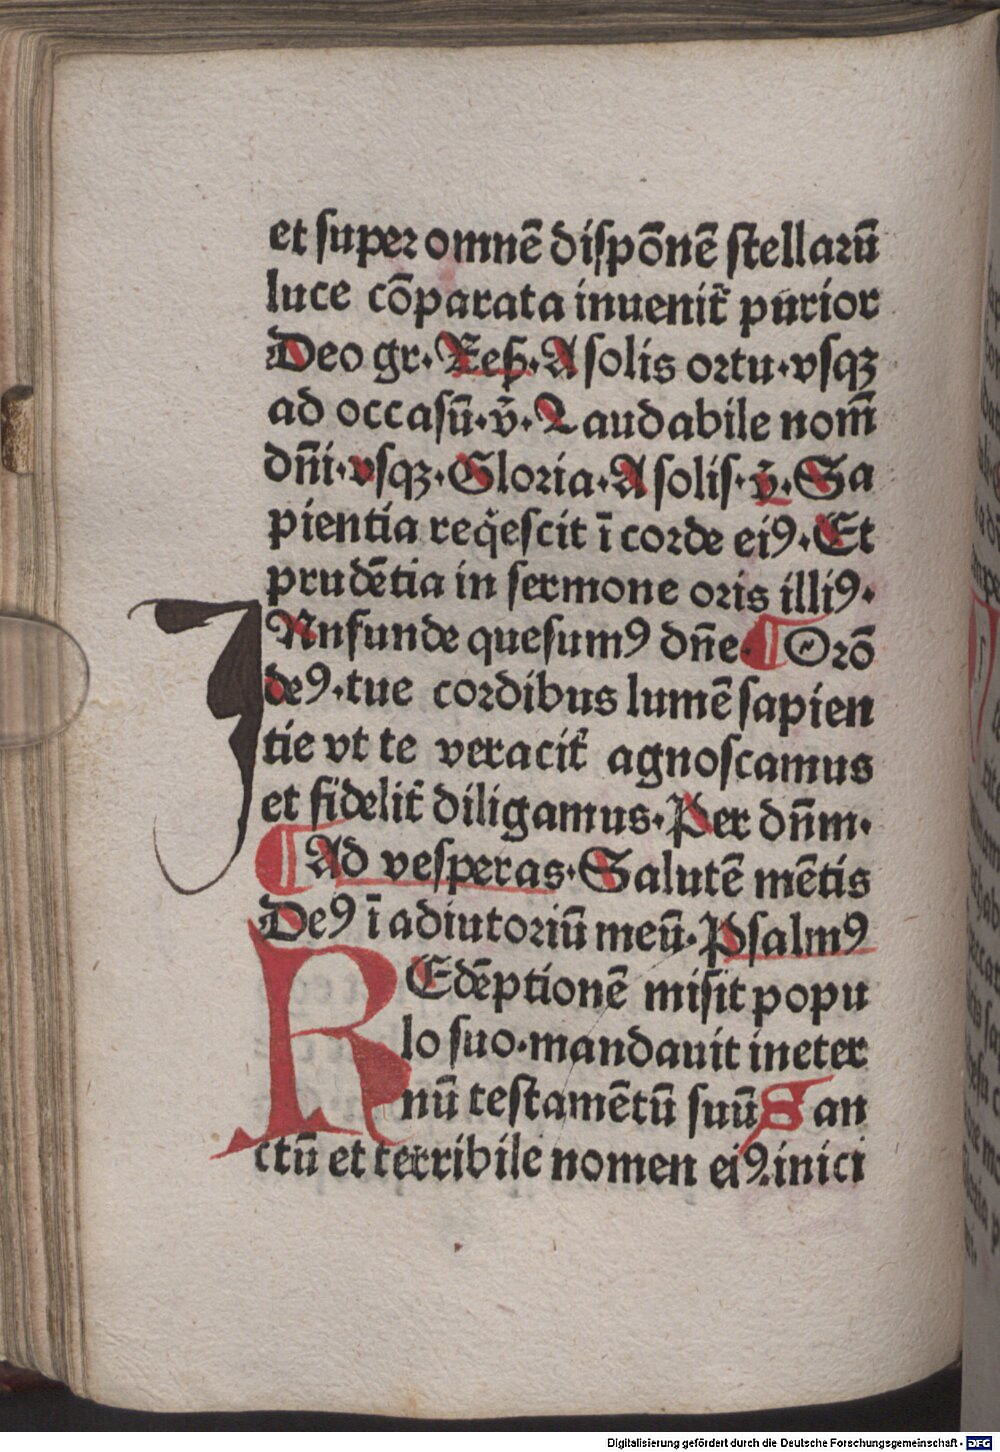 et super omnē dispōnē stellarū
luce cōparata inuenit᷑ purior
Deo gr. Resp. A solis ortu. vsqꝫ
ad occasū. v̄. Laudabile nom̄
dn̄i. vsqꝫ. Gloria. A solis. v̄. Sa
pientia reqͥescit ī corde eiꝰ. Et
prudētia in sermone oris illiꝰ.
INnfunde quesumꝰ dn̄e ¶ Orō
deꝰ. tue cordibus lumē sapien
tie vt te veracit᷑ agnoscamus
et fidelit᷑ diligamus. Per dn̄m.
¶ Ad vesperas. Salutē mētis
Deꝰ ī adiutoriū meū. Psalmꝰ
REdēptionē misit popu
lo suo. mandauit ineter
nū testamētū suū San
ctū et terribile nomen eiꝰ. inici
Digitalisierung gefördert durch die Deutsche Forschungsgemeinschaft - DFG